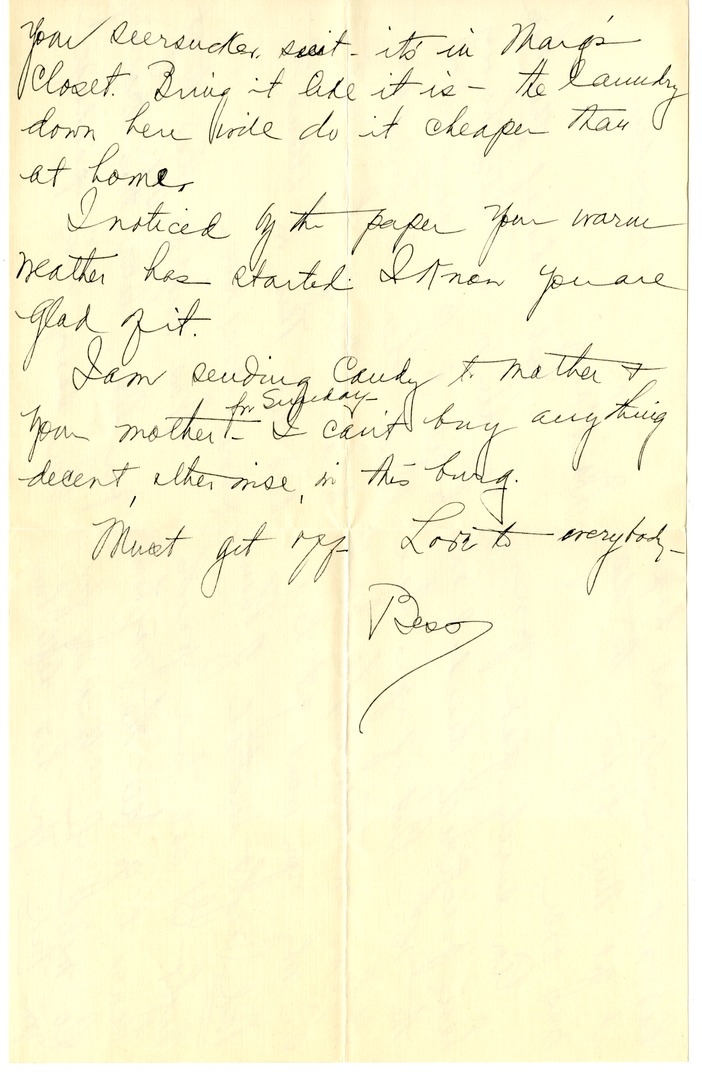 your seersucker suit - it's in Marg's
closet. Bring it like it is - the laundry
down here will do it cheaper than
at home.
I noticed by the paper your warm
weather has started. I know you are
glad of it.
I am sending candy to mother &
for Sunday -
your mother - I can't buy anything
decent, otherwise, in this burg.
Must get off Love to everybody -
Bess